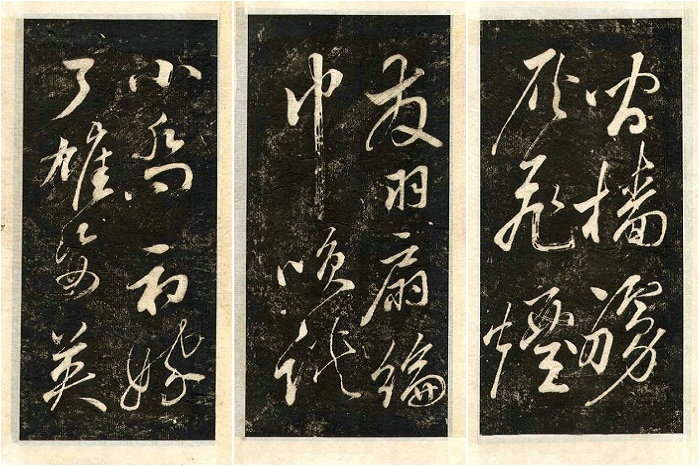 小喬初嫁
了雄姿英
發羽扇綸
巾咲談
間檣艣
灰飛煙